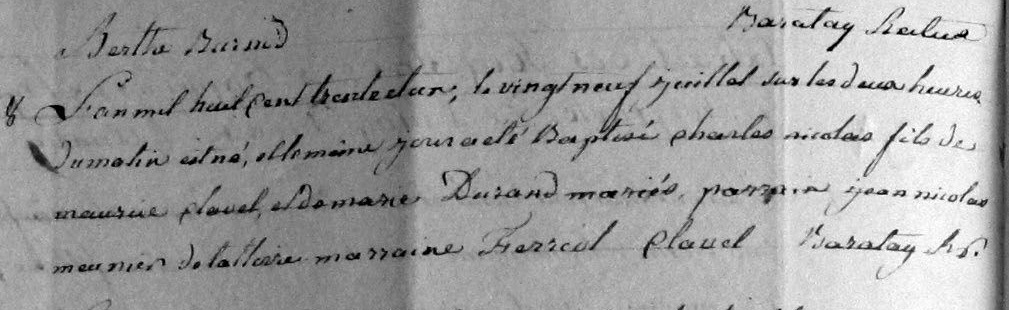 Bertto Burind Baratay Recteur
8 L'an mil huit cent trente et un, le vingt neuf juillet sur les deux heures
du matin est né, et le même jour a été Baptisé charles nicolas fils de
maurice clavel, et de marie Durand mariés, parrain jean nicolas
meunier de la marraine Ferriol Clavel Baratay Rr.